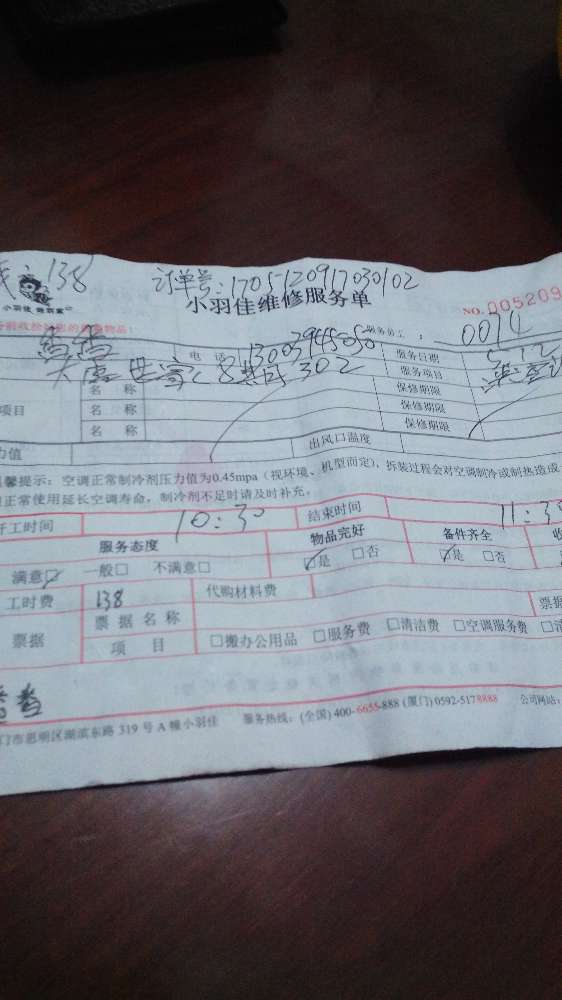 ：138 订单号：170512091703010​2
小羽佳维修服务单
小羽佳 NO. 005209
服务员工： 0014
电话 13003945050 服务日期 5.12
302 服务项目
名称 保修期限
项目 名称 保修期限
名称 保修期限
力值 出风口温度
馨提示：空调正常制冷剂压力值为0.45mpa（视环境、机型而定），拆装过程会对空调制冷或制热造成
正常使用延长空调寿命，制冷剂不足时请及时补充。
开工时间 10:30 结束时间 11:30
服务态度 物品完好 备件齐全 收
满意☑ 一般□ 不满意□ ☑是 □否 ☑是 □否
工时费 138 代购材料费
票据名称 票据
票据 项目 □搬办公用品 □服务费 □清洁费 □空调服务费
门市思明区湖滨东路 319 号 A 幢小羽佳 服务热线：(全国) 400-6655-888 (厦门) 0592-5178888 公司网站：